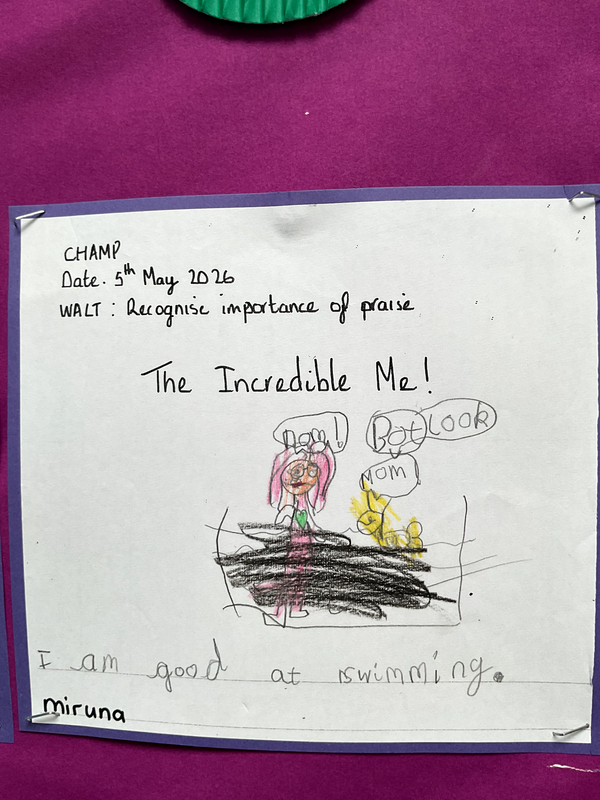 CHAMP
Date. 5th May 2026
WALT : Recognise importance of praise
The Incredible Me!
mom!
Bot Look
MOM!
I am good at swimming.
miruna